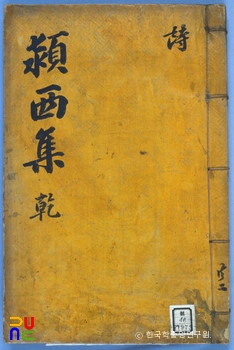 詩
共二
潁西集 乾
© 한국학중앙연구원